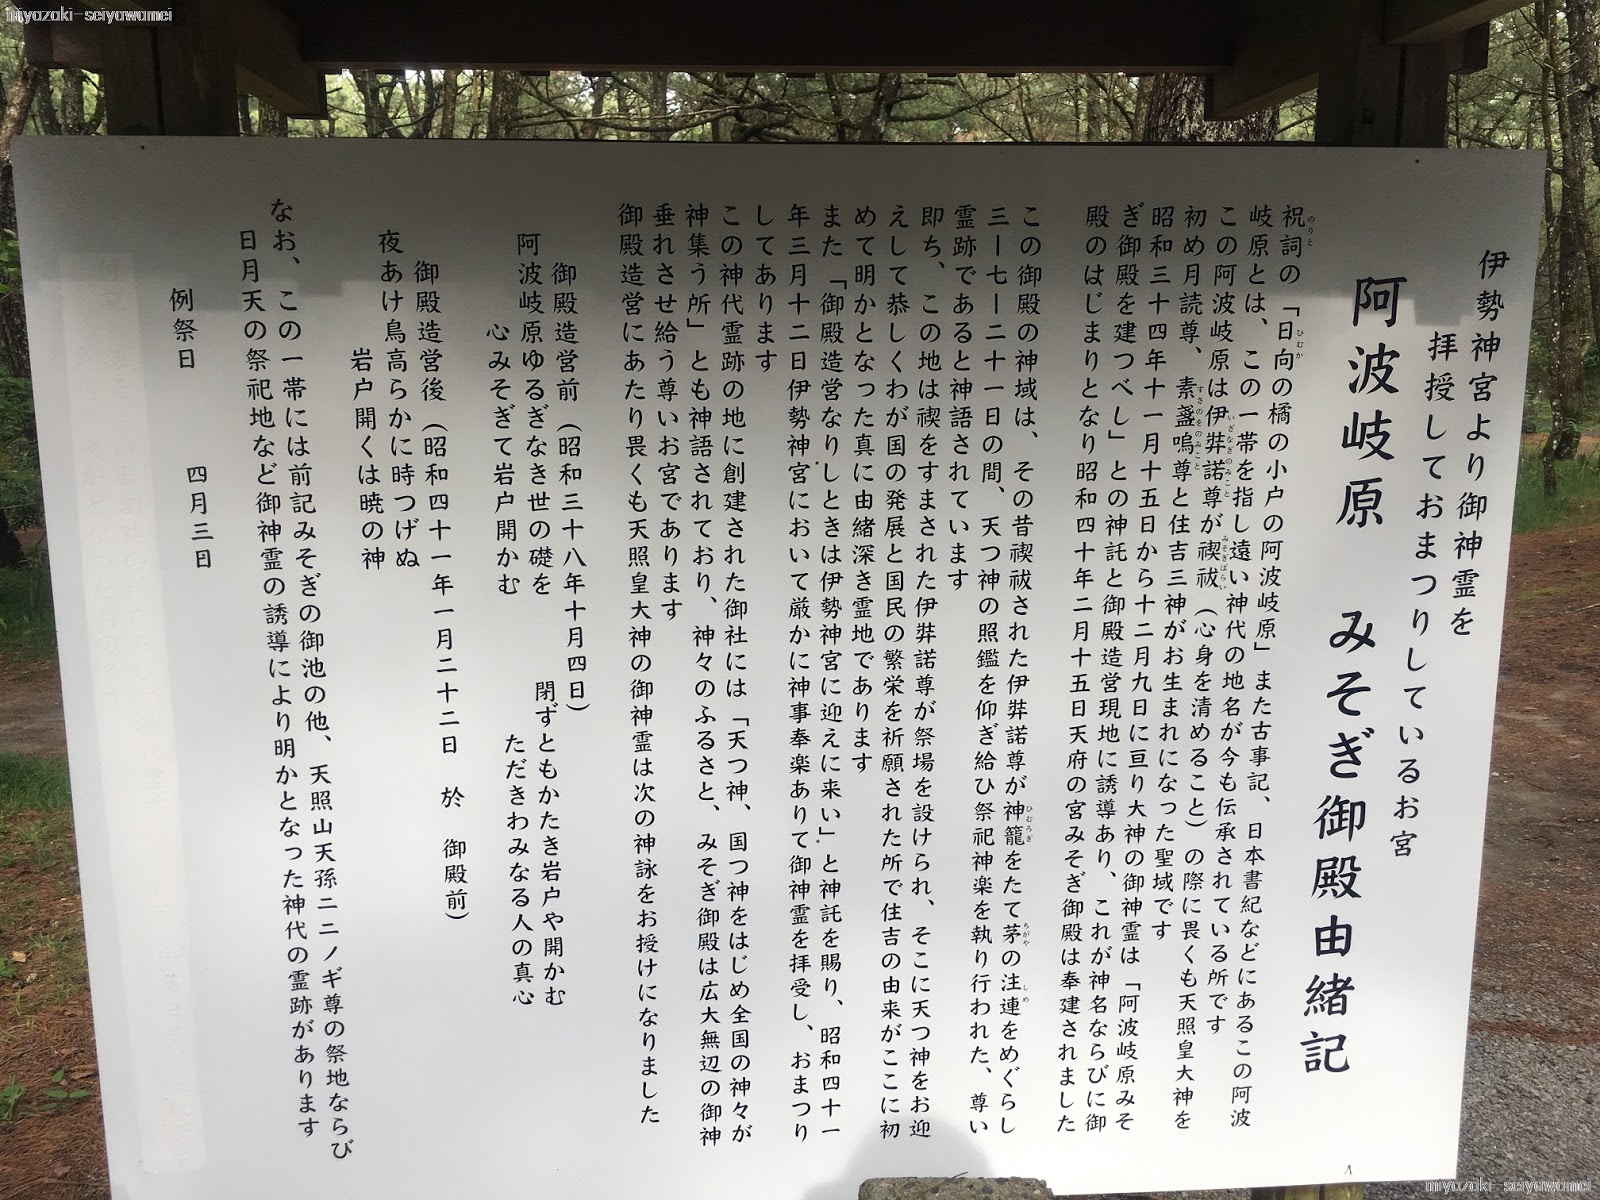 miyazaki-seiyawamei
伊勢神宮より御神霊を
拝授しておまつりしているお宮
阿波岐原 みそぎ御殿由緒記
祝詞の「日向の橘の小戸の阿波岐原」また古事記、日本書紀などにあるこの阿波
のりと
ひむか
岐原とは、この一帯を指し遠い神代の地名が今も伝承されている所です
この阿波岐原は伊弉諾尊が禊祓(心身を清めること)の際に畏くも天照皇大神を
いざなぎのみこと
みそぎばらい
初め月読尊、素盞嗚尊と住吉三神がお生まれになった聖域です
すさのをのみこと
昭和三十四年十一月十五日から十二月九日に亘り大神の御神霊は「阿波岐原みそ
ぎ御殿を建つべし」との神託と御殿造営現地に誘導あり、これが神名ならびに御
殿のはじまりとなり昭和四十年二月十五日天府の宮みそぎ御殿は奉建されました
この御殿の神域は、その昔禊祓された伊弉諾尊が神籠をたて茅の注連をめぐらし
ひむろぎ
ちがや
しめ
三ー七ー二十一日の間、天つ神の照鑑を仰ぎ給ひ祭祀神楽を執り行われた、尊い
霊跡であると神語されています
即ち、この地は禊をすまされた伊弉諾尊が祭場を設けられ、そこに天つ神をお迎
えして恭しくわが国の発展と国民の繁栄を祈願された所で住吉の由来がここに初
めて明かとなった真に由緒深き霊地であります
また「御殿造営なりしときは伊勢神宮に迎えに来い」と神託を賜り、昭和四十一
年三月十二日伊勢神宮において厳かに神事奉楽ありて御神霊を拝受し、おまつり
してあります
この神代霊跡の地に創建された御社には「天つ神、国つ神をはじめ全国の神々が
神集う所」とも神語されており、神々のふるさと、みそぎ御殿は広大無辺の御神
垂れさせ給う尊いお宮であります
御殿造営にあたり畏くも天照皇大神の御神霊は次の神詠をお授けになりました
御殿造営前(昭和三十八年十月四日)
阿波岐原ゆるぎなき世の礎を
心みそぎて岩戸開かむ
閉ずともかたき岩戸や開かむ
ただきわみなる人の真心
御殿造営後(昭和四十一年一月二十二日 於 御殿前)
夜あけ鳥高らかに時つげぬ
岩戸開くは暁の神
なお、この一帯には前記みそぎの御池の他、天照山天孫ニニノギ尊の祭地ならび
日月天の祭祀地など御神霊の誘導により明かとなった神代の霊跡があります
例祭日 四月三日
miyazaki-seiyawamei